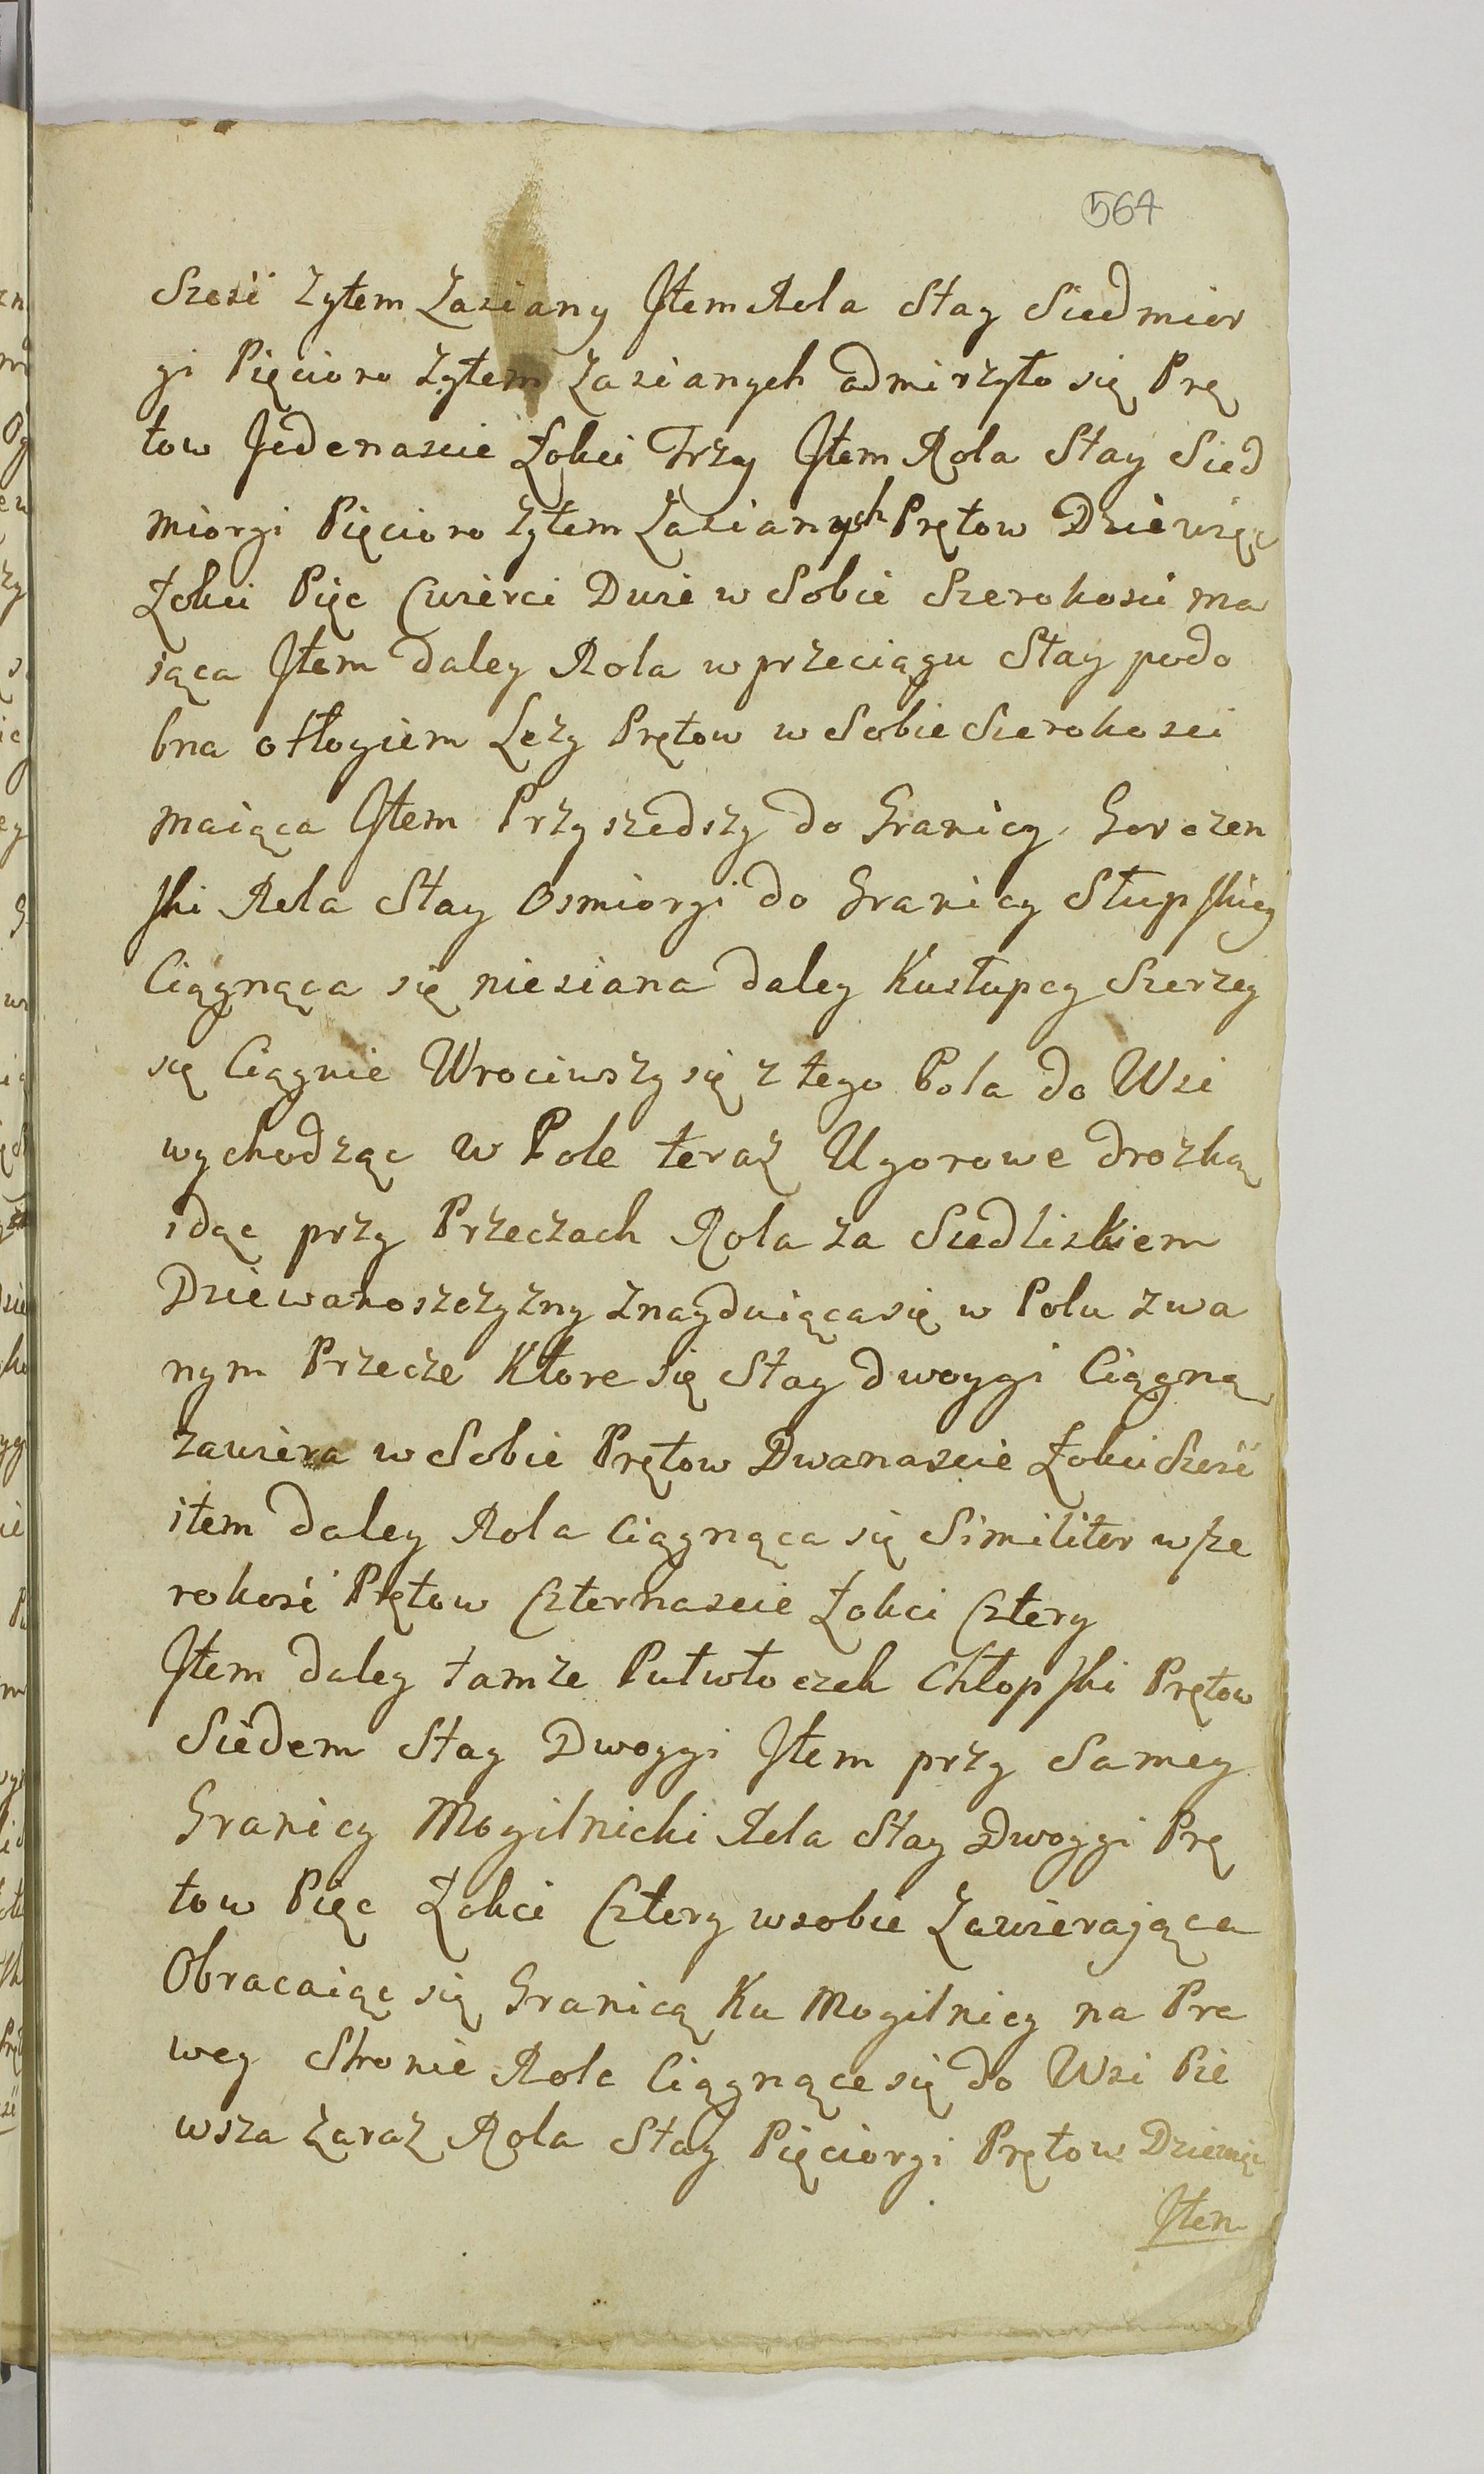 564
Szesć Zytem Zasiany Jtem Rola Stay Siedmior
gi Pięcioro Zytem Zasianych admirzyło się Prę
tow Jedenascie Łokci Trzy Jtem Rola Stay Sied
miorgi Pięcioro Zytem Zasianych Prętow Dziewięc
Łokci Pięc Cwierci Dwie w Sobie Szerokosci ma
iąca Jtem daley Rola w przeciągu Stay podo
bna otłogiem Leży Prętow w Sobie Szerokosci
maiąca Jtem Przyszedszy do Granicy Gorczen
ski Rola Stay Osmiorgi do Granicy Słupskiey
Ciągnąca się niesiana daley Kusłupcy Szerzey
się Ciągnie Wrociwszy się z tego Pola do Wsi
wychodząc w Pole teraz Ugorowe drozką
idąc przy Przeczach Rola za Siedliskiem
Dziewanoszczyzny Znayduiąca się w Polu zwa
nym Przecze Ktore się Stay dwoygi Ciągną
zawiera w Sobie Prętow Dwanascie Łokci Szesć
item daley Rola ciągnąca się Similiter wsze
rokosć Prętow Czternascie Łokci Cztery
Jtem daley tamze Pułwłoczek Chłopski Prętow
Siedem Stay Dwoygi Jtem przy Samey
Granicy Mogilnicki Rola Stay Dwoygi Prę
tow Pięc Łokci Cztery wsobie Zawierająca
Obracaiąc się Granicą Ku Mogilnicy na Pra
wey Stronie Role Ciągnące się do Wsi Pie
wsza Zaraz Rola Stay Pięciorgi Prętow Dziewięc
Jtem